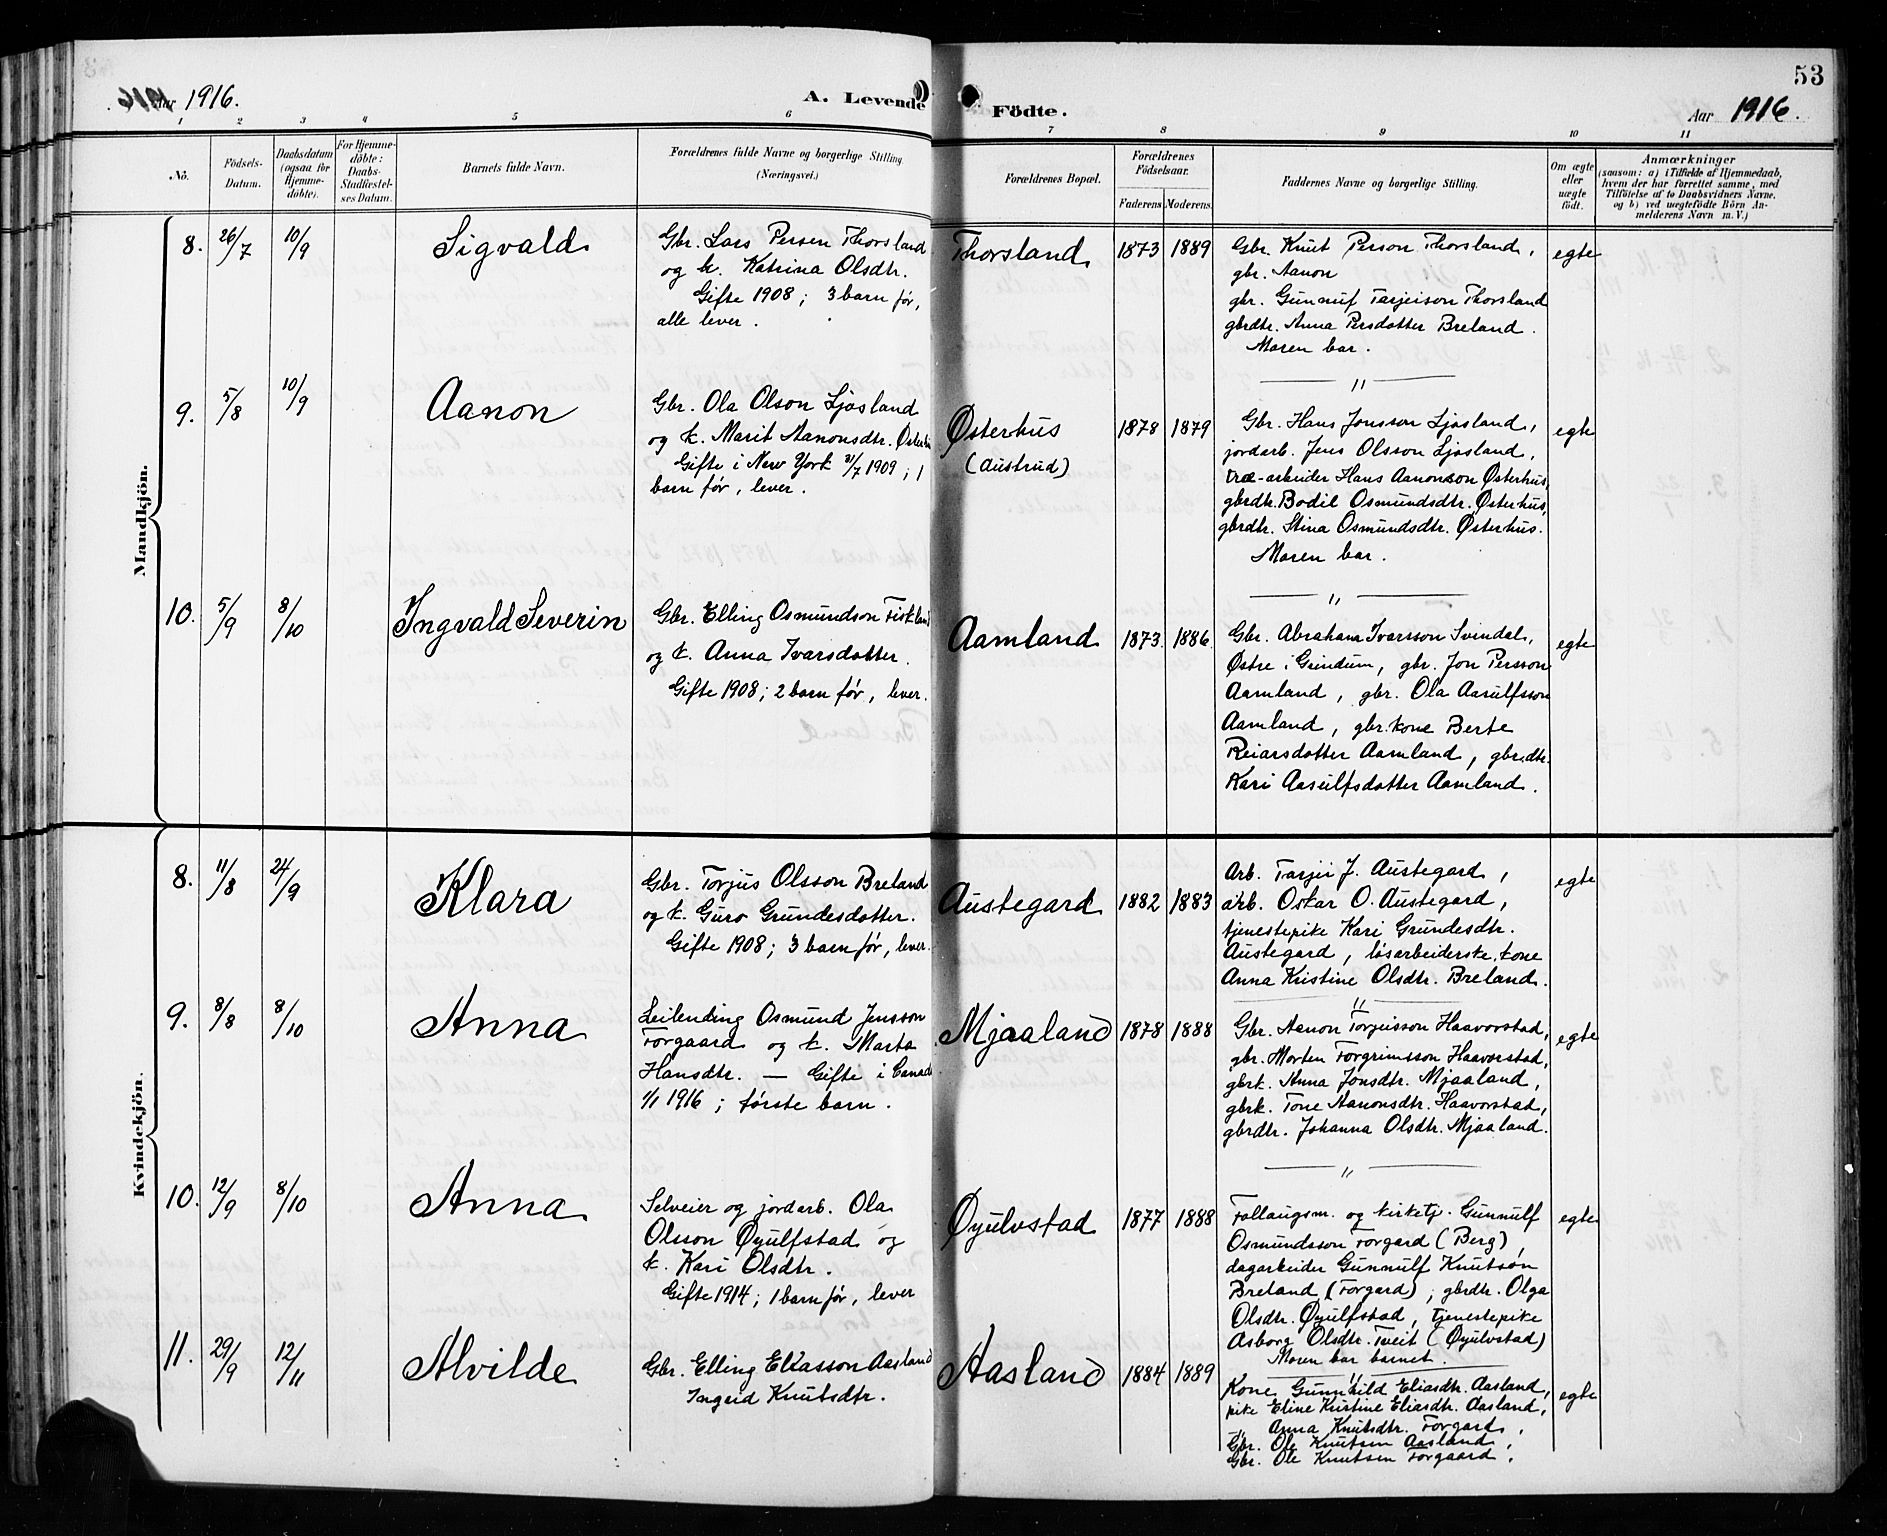 53
Aar 1916.
A. Levende Födte.
Aar 1916.
1 2 3 4 5 6 7 8 9 10 11
No.
Födsels-Datum.
Daabsdatum (ogsaa for Hjemme-döbte).
For Hjemme-döbte: Daabs-Stadfæstel-ses Datum.
Barnets fulde Navn.
Forældrenes fulde Navne og borgerlige Stilling (Næringsvei.)
Forældrenes Bopæl.
Forældrenes Födselsaar.
Faderens Moderens.
Faddernes Navne og borgerlige Stilling.
Om ægte eller uægte födt.
Anmærkninger
(saasom: a) i Tilfælde af Hjemmedaab,
hvem der har forrettet samme, med
Tilföielse af to Daabsvidners Navne,
og b) ved uegtefödte Börn An-
melderens Navn m. V.)
Mandkjön.
8. 26/7 10/9 Sigvald
Gbr. Lars Persen Thorsland
og k. Katrina Olsdtr.
Gifte 1908; 3 barn før,
alle lever.
Thorsland 1873 1889
Gbr. Knut Person Thorsland,
gbr. Aanon
gbr. Gunnuf Tarjeison Thorsland
gbrdtr. Anna Persdotter Breland.
Moren bar.
egte
9. 5/8 10/9 Aanon
Gbr. Ola Olson Ljosland
og k. Marit Aanonsdtr. Østerhus
Gifte i New York 31/7 1909; 1
barn før, lever.
Østerhus
(Austrud)
1878 1879
Gbr. Hans Jonsson Ljosland,
jordarb. Jens Olsson Ljosland,
træ-arbeider Hans Aanonson Østerhus,
gbrdtr. Bodil Osmundsdtr. Østerhus,
gbrdtr. Stina Osmundsdtr. Østerhus.
Moren bar.
egte
10. 5/9 8/10 Ingvald Severin
Gbr. Elling Osmundson Fiskland
og k. Anna Ivarsdotter.
Gifte 1908; 2 barn før, lever.
Aamland 1873 1886
Gbr. Abraham Ivarsson Svindal,
Østre i Grindum, gbr. Jon Persson
Aamland, gbr. Ola Aasulfsson
Aamland, gbr.kone Berte
Reiarsdotter Aamland, gbrdtr.
Kari Aasulfsdotter Aamland.
egte
Kvindekjön.
8. 11/8 24/9 Klara
Gbr. Torjus Olsson Breland
og k. Guro Grundesdotter.
Gifte 1908; 3 barn før, lever.
Austegard 1882 1883
Arb. Tarjei J. Austegard,
arb. Oskar O. Austegard,
tjenestepike Kari Grundesdtr.
Austegard, løsarbeiderske, kone
Anna Kristine Olsdtr. Breland.
egte
9. 8/8 8/10 Anna
Leilending Osmund Jensson
Forgaard og k. Marta
Hansdtr. — Gifte i Canada
1/1 1916; første barn.
Mjaaland 1878 1888
Gbr. Aanon Torjeisson Haavorstad,
gbr. Morten Torgrimsson Haavorstad,
gbrk. Anna Jonsdtr. Mjaaland,
gbrk. Tone Aanonsdtr. Haavorstad,
gbrdtr. Johanna Olsdtr. Mjaaland.
egte
10. 12/9 8/10 Anna
Selveier og jordarb. Ola
Olsson Øyulfstad og
k. Kari Olsdtr.
Gifte 1914; 1 barn før, lever
Øyulvstad 1877 1888
Fallaugsm. og kirketj. Gunnulf
Osmundsson Forgard (Berg),
dagarbeider Gunnulf Knutson
Breland (Forgard), gbrdtr. Olga
Olsdtr. Øyulfstad, tjenestepike
Asborg Olsdtr. Tveit (Øyulvstad)
Moren bar barnet.
egte
11. 29/9 12/11 Alvilde
Gbr. Elling Eliasson Aasland
Ingeid Knutsdtr.
Aasland 1884 1889
Kone Gunnhild Eliasdtr. Aasland,
pike Eline Kristine Eliasdtr. Aasland,
" Anna Knutsdtr. Forgard,
Gbr. Ole Knutsen Aasland,
Gbr. Ole Knutsen Forgaard,
egte